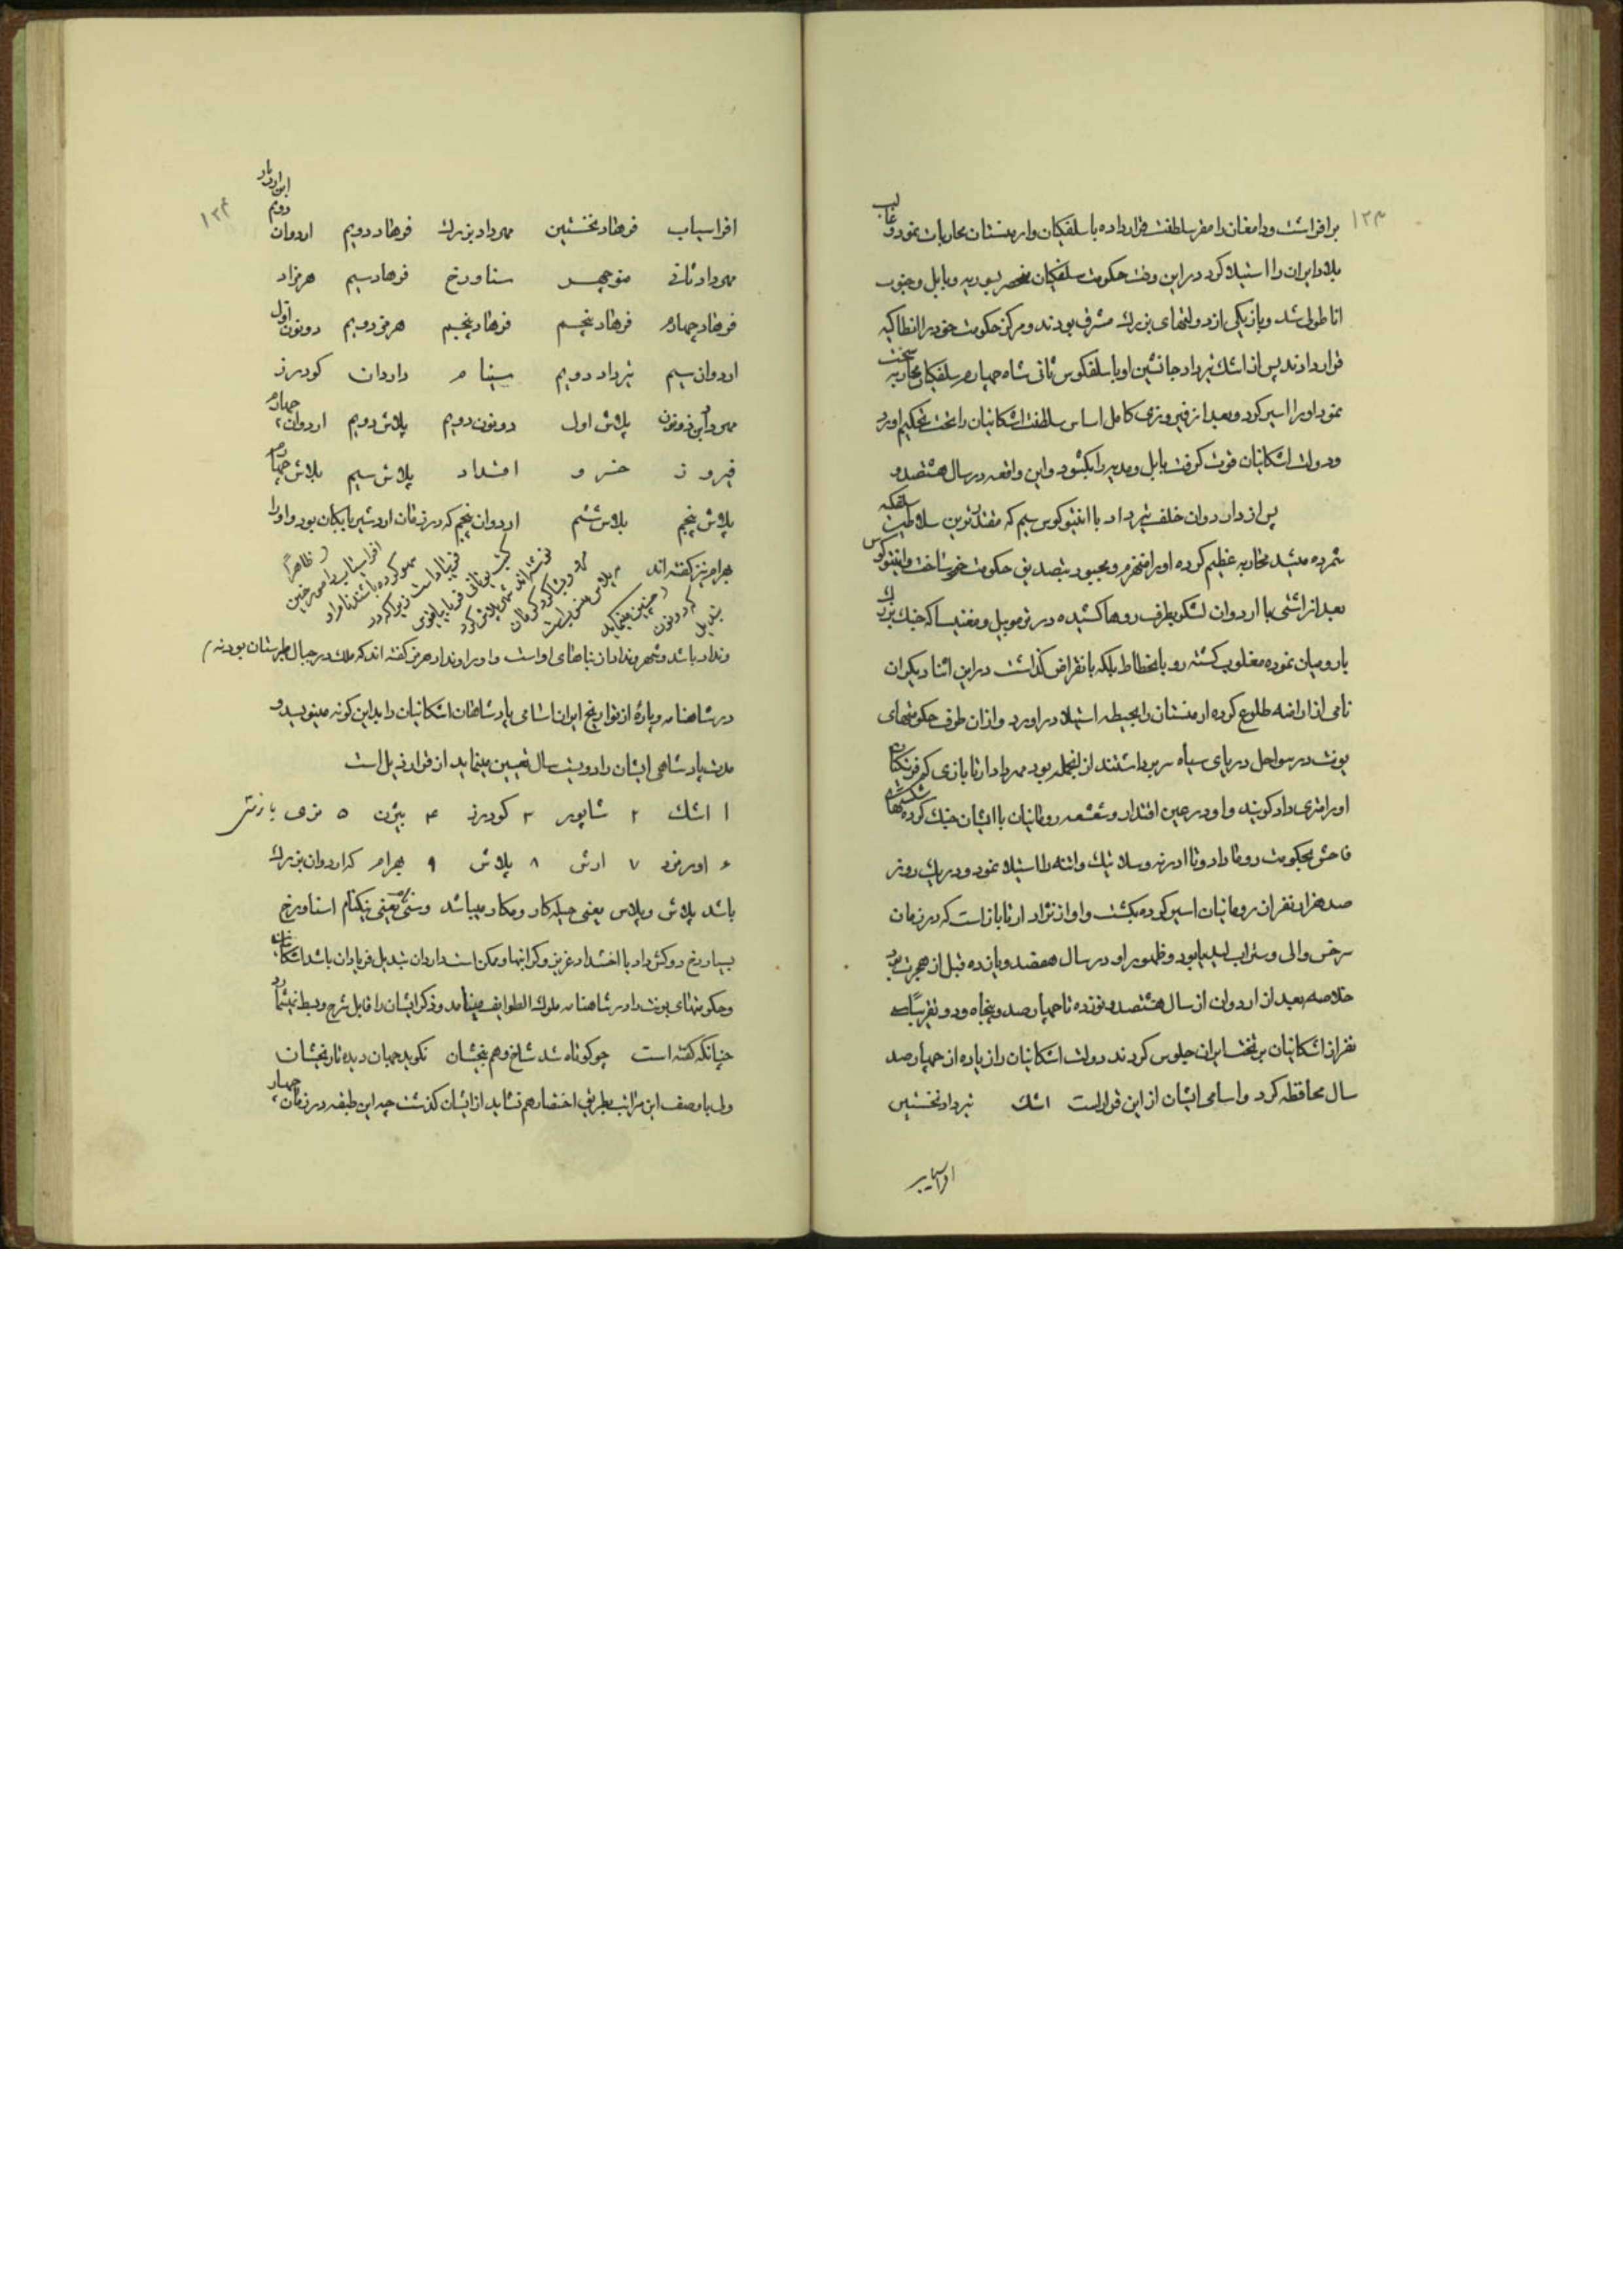 ۱۲۳
برافراشت ودامغان را مقر سلطنت قرار داده با سلفکیان وارمنستان محاربات نمود و غالب
بلاد ایران را استیلا کرد در این وقت حکومت سلفکیان منحصر بسوریه و بابل و جنوب
اناطولی شد و باز یکی از دولتهای بزرك مشرق بودند و مرکز حکومت خود را انطاکیه
قرار دادند پس از اشك تیرداد جانشین او با سلفکوس ثانی شاه چهارم سلفکیان محاربه سخت
نمود او را اسیر کرد و بعد از فیروزی کامل اساس سلطنت اشکانیان را تحت تحکیم اورد
ودولت اشکانیان قوت گرفت بابل و مدیه را بکشود و این واقعه در سال هشتصد و
پس از دار دوان خلف تیرداد با انتیوکوس سیم که مقتدرترین سلاطین سلفکه
شمرده میشد محاربه عظیم کرده او را منهزم و مجبور بتصدیق حکومت خود ساخت وانتیوکوس
بعد از اشتی با اردوان لشکر بطرف روما کشیده در ترموپیل و مغنیسا که جنك بزرك
با رومیان نموده مغلوب گشته رو بانحطاط بلکه بانقراض گذاشت در این اثنا دیکران
نامی از اراضه طلوع کرده ارمنستان را بحیطه استیلا در اورد و از ان طرف حکومتهای
پونت در سواحل دریای سیاه سربرداشتند از انجمله بود مهرداد ارتابازی که فرنکان
او را متری داد گویند و او در عین اقتدار و شعشعه رومانیان با ایشان جنك کرده شکستهای
فاحش بحکومت روما داد و تا ادرنه و سلانیك واتنه را استیلا نمود و در یك روز
صد هزار نفر از رومانیان اسیر کرده بکشت و او از نژاد ارتاباز است که در زمان
سرخس والی و ستراپ لیدیا بود و ظهور او در سال هفصد و یازده قبل از هجرت بود
خلاصه بعد از اردوان از سال هشتصد و نوزده تا چهارصد و پنجاه و دو تقریباً سی
نفر از اشکانیان بر تخت ایران جلوس کردند دولت اشکانیان را زیاده از چهارصد
سال محافظه کرد و اسامی ایشان از این قرار است اشك تیرداد نخستین
افراسیاب
۱۲۴
افراسیاب فرهاد نخستین مهرداد بزرك فرهاد دویم اردوان دویم ابن اردباد
مهرداد ثانی منوچهر سناورخ فرهاد سیم هرمزاد
فرهاد چهارم فرهاد پنجم فرهاد پنجیم هرمز دویم دونون اول
اردوان سیم تیرداد دویم سینام داردان کودرز
مهرداد ابن دونون پلاش اول دونون دویم پلاش دویم اردوان چهارم
فیروز خسرو افشداد پلاش سیم پلاش چهارم
پلاش پنجم پلاش ششم اردوان پنجم که در زمان اردشیر بابکان بود واورا
بهرام نیز گفته اند
ظاهراً
افراسیاب را مورخین
سهو کرده باشند نام او
است زیرا که در
کتب یونانی فریاپاتیوس
نوشته اند
چنین مینماید
که دونون
تبدیل
ونداد باشد و شهر ونداد از بناهای او است و او را ونداد هرمز گفته اند که ملك در جبال طبرستان بود نه
در شاهنامه و پارهٔ از تواریخ ایران اسامی پادشاهان اشکانیان را بدین گونه مینویسد و
مدت پادشاهی ایشان را دویست سال تعیین مینماید از قرار ذیل است
۱ اشك ۲ شاپور ۳ کودرز ۴ بیژن ۵ نرسی یا نرسی
۶ اورمزد ۷ ارش ۸ پلاش ۹ بهرام که اردوان بزرك
باشد پلاش و پلاس یعنی حیله کار و مکار میباشد وسنی یعنی نیکنام استاورخ
بسیار رخ و کش داد یا اخشداد عزیز و گرانبها و ممکن است داردان تبدیل فریادان باشد اشکانیان
وحکومتهای پونت را در شاهنامه ملوك الطوایف مینامد و ذکر ایشان را قابل شرح وبسط نمیشمارد
چنانکه گفته است چو کوتاه شد شاخ و هم بیخشان نگوید جهان دیده تاریخشان
ولی با وصف این مراتب بطریق اختصار هم نشاید از ایشان گذشت چه این طبقه در زمان چهار